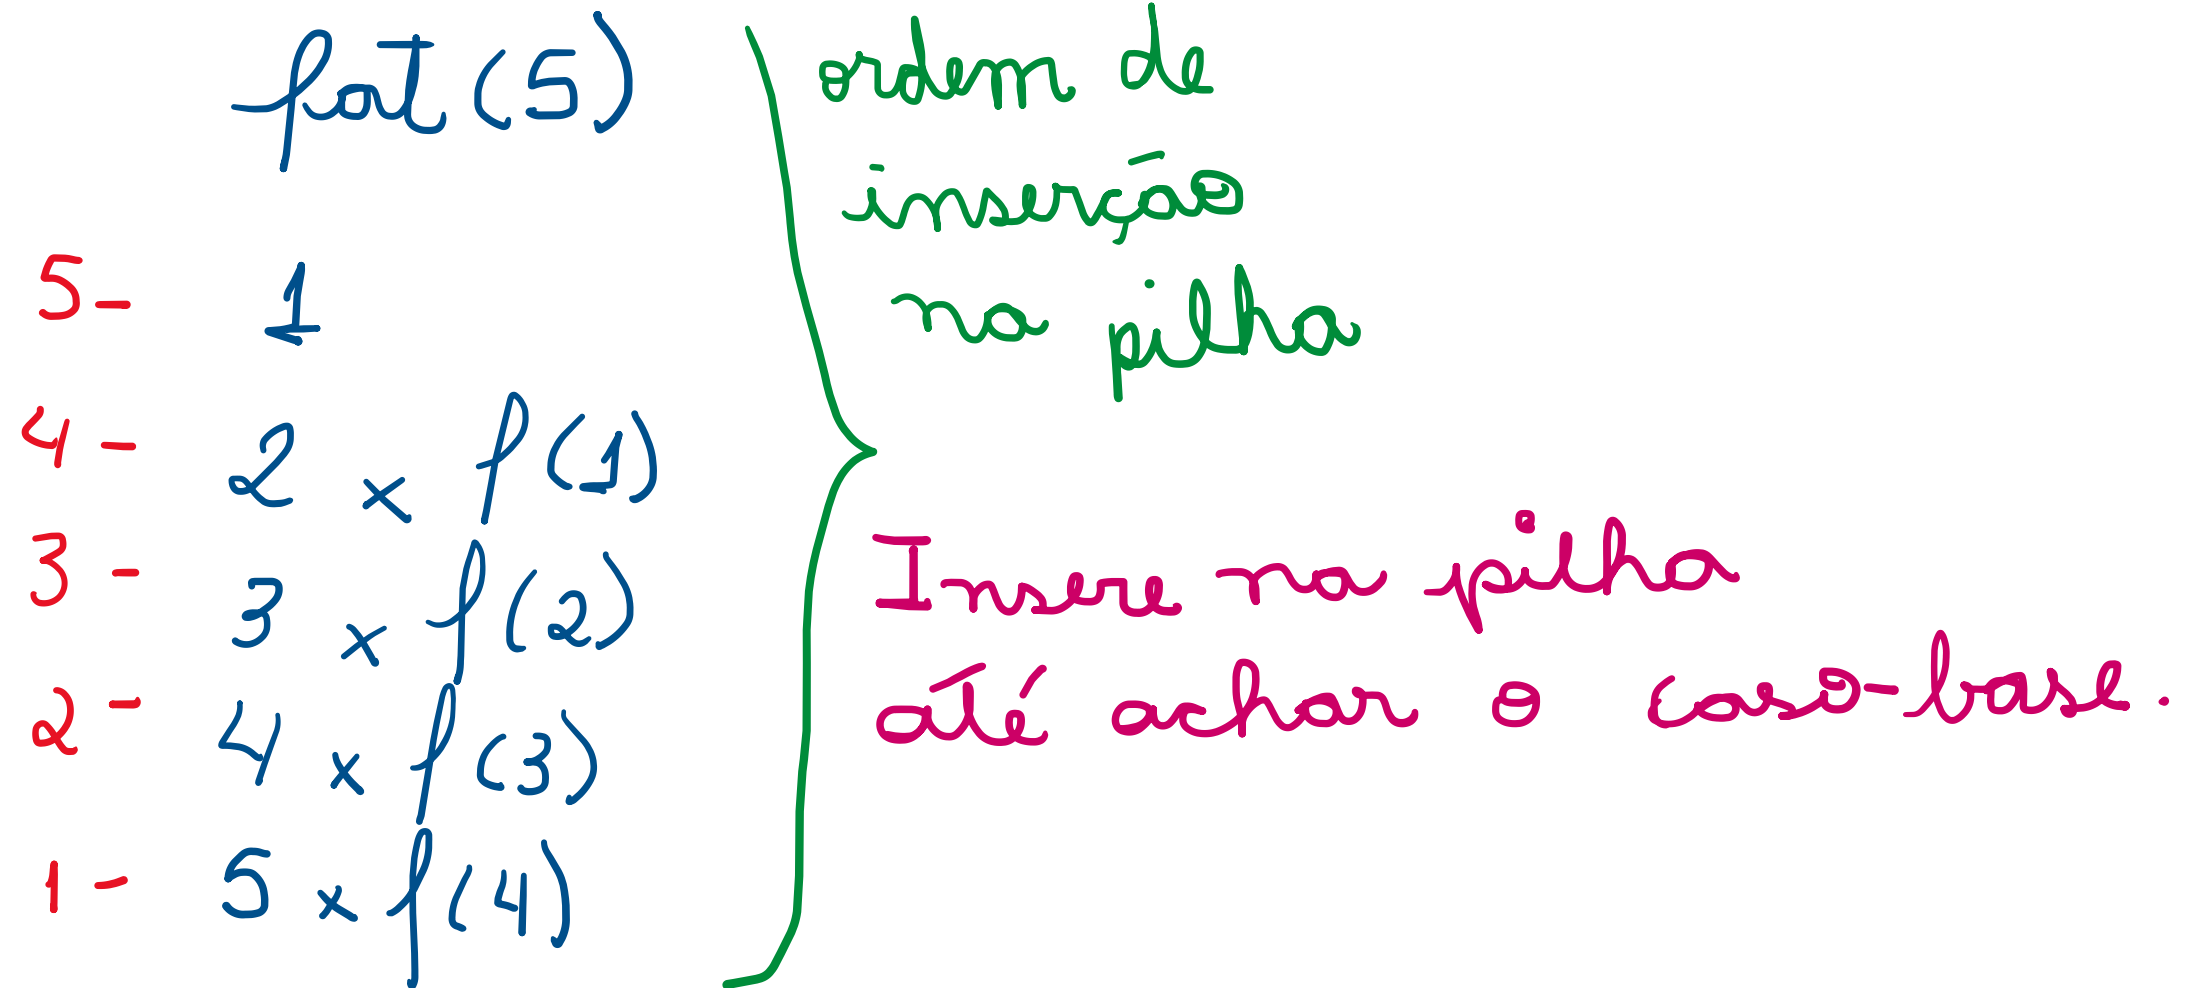 fat(5)
5- 1
4- 2 x f(1)
3- 3 x f(2)
2- 4 x f(3)
1- 5 x f(4)
ordem de
inserção
na pilha
Insere na pilha
até achar o caso-base.